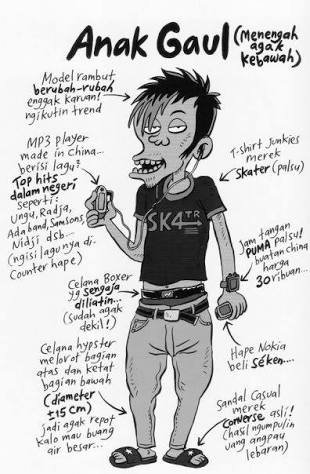 Anak Gaul (Menengah
agak
kebawah)
Model rambut
berubah-rubah
enggak karuan!
ngikutin trend
MP3 player
made in China...
berisi lagu²
Top hits
dalam negeri
seperti:
Ungu, Radja,
Ada band, Samsons,
Nidji dsb...
(ngisi lagunya di
Counter hape)
T-shirt Junkies
merek
Skater (palsu)
SK4TR
Jam tangan
PUMA Palsu!
buatan china
harga
30 ribuan...
Celana Boxer
yg sengaja
diliatin...
(sudah agak
dekil!)
Hape Nokia
beli séken....
Celana hypster
melorot bagian
atas dan ketat
bagian bawah
(diameter
±15 cm)
jadi agak repot
kalo mau buang
air besar...
Sandal Casual
merek
Converse asli!
(hasil ngumpulin
uang angpau
lebaran)